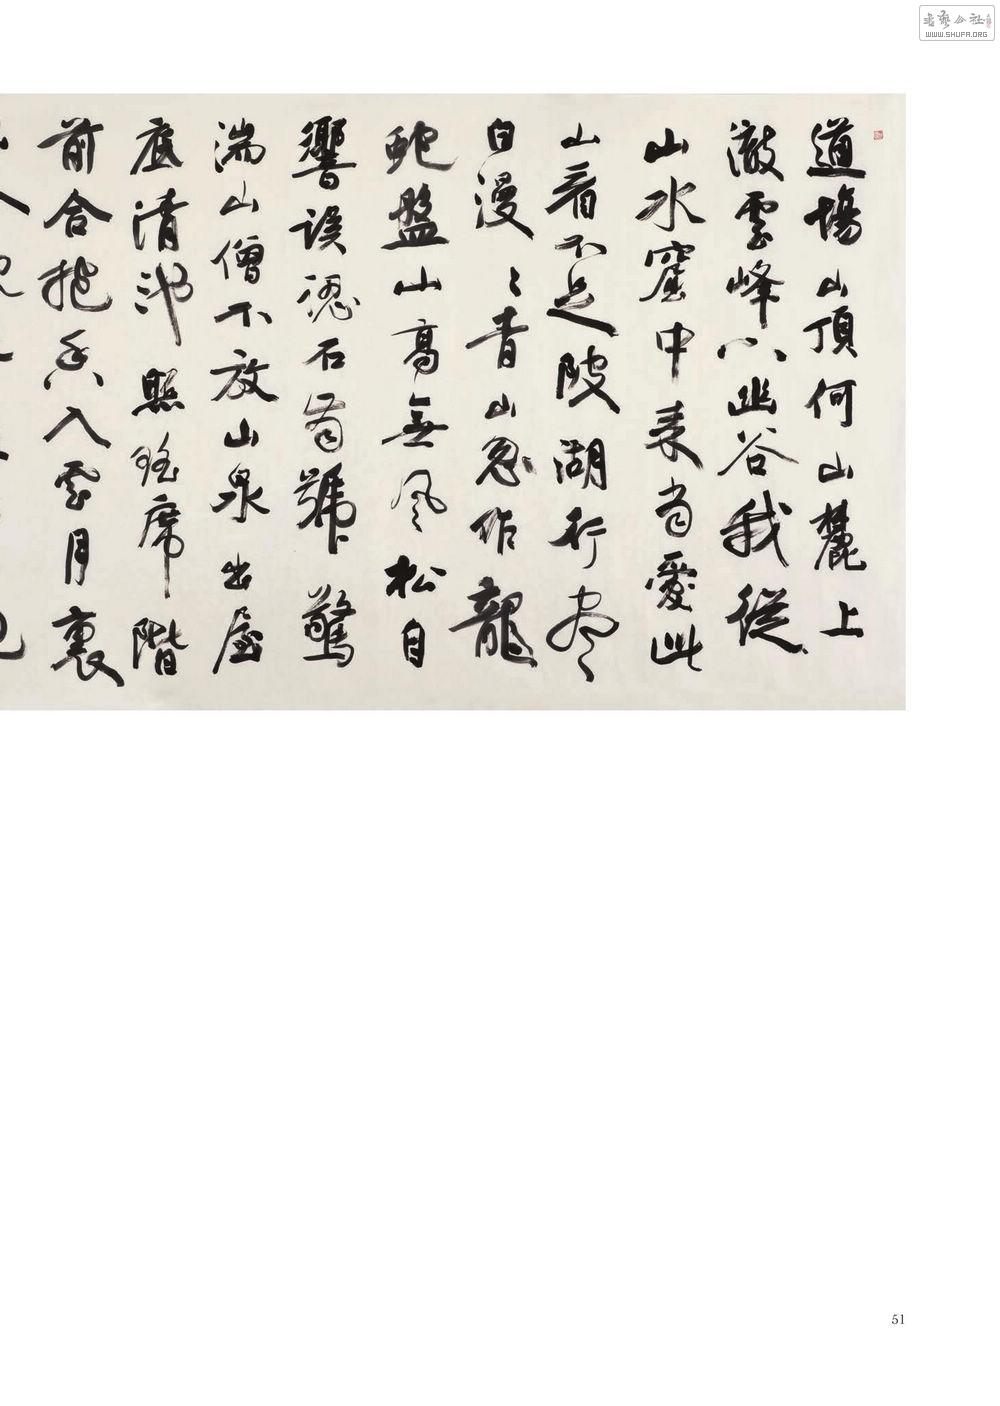 道場山頂何山麓上
徹雲峰下幽谷我從
山水窟中来尚愛此
山看不足陂湖行盡
白漫〻青山忽作龍
蛇盤山高無風松自
響誤認石齒號驚
湍山僧不放山泉出屋
底清池照瑤席階
前合抱香入雲月裏
51
WWW.SHUFA.ORG